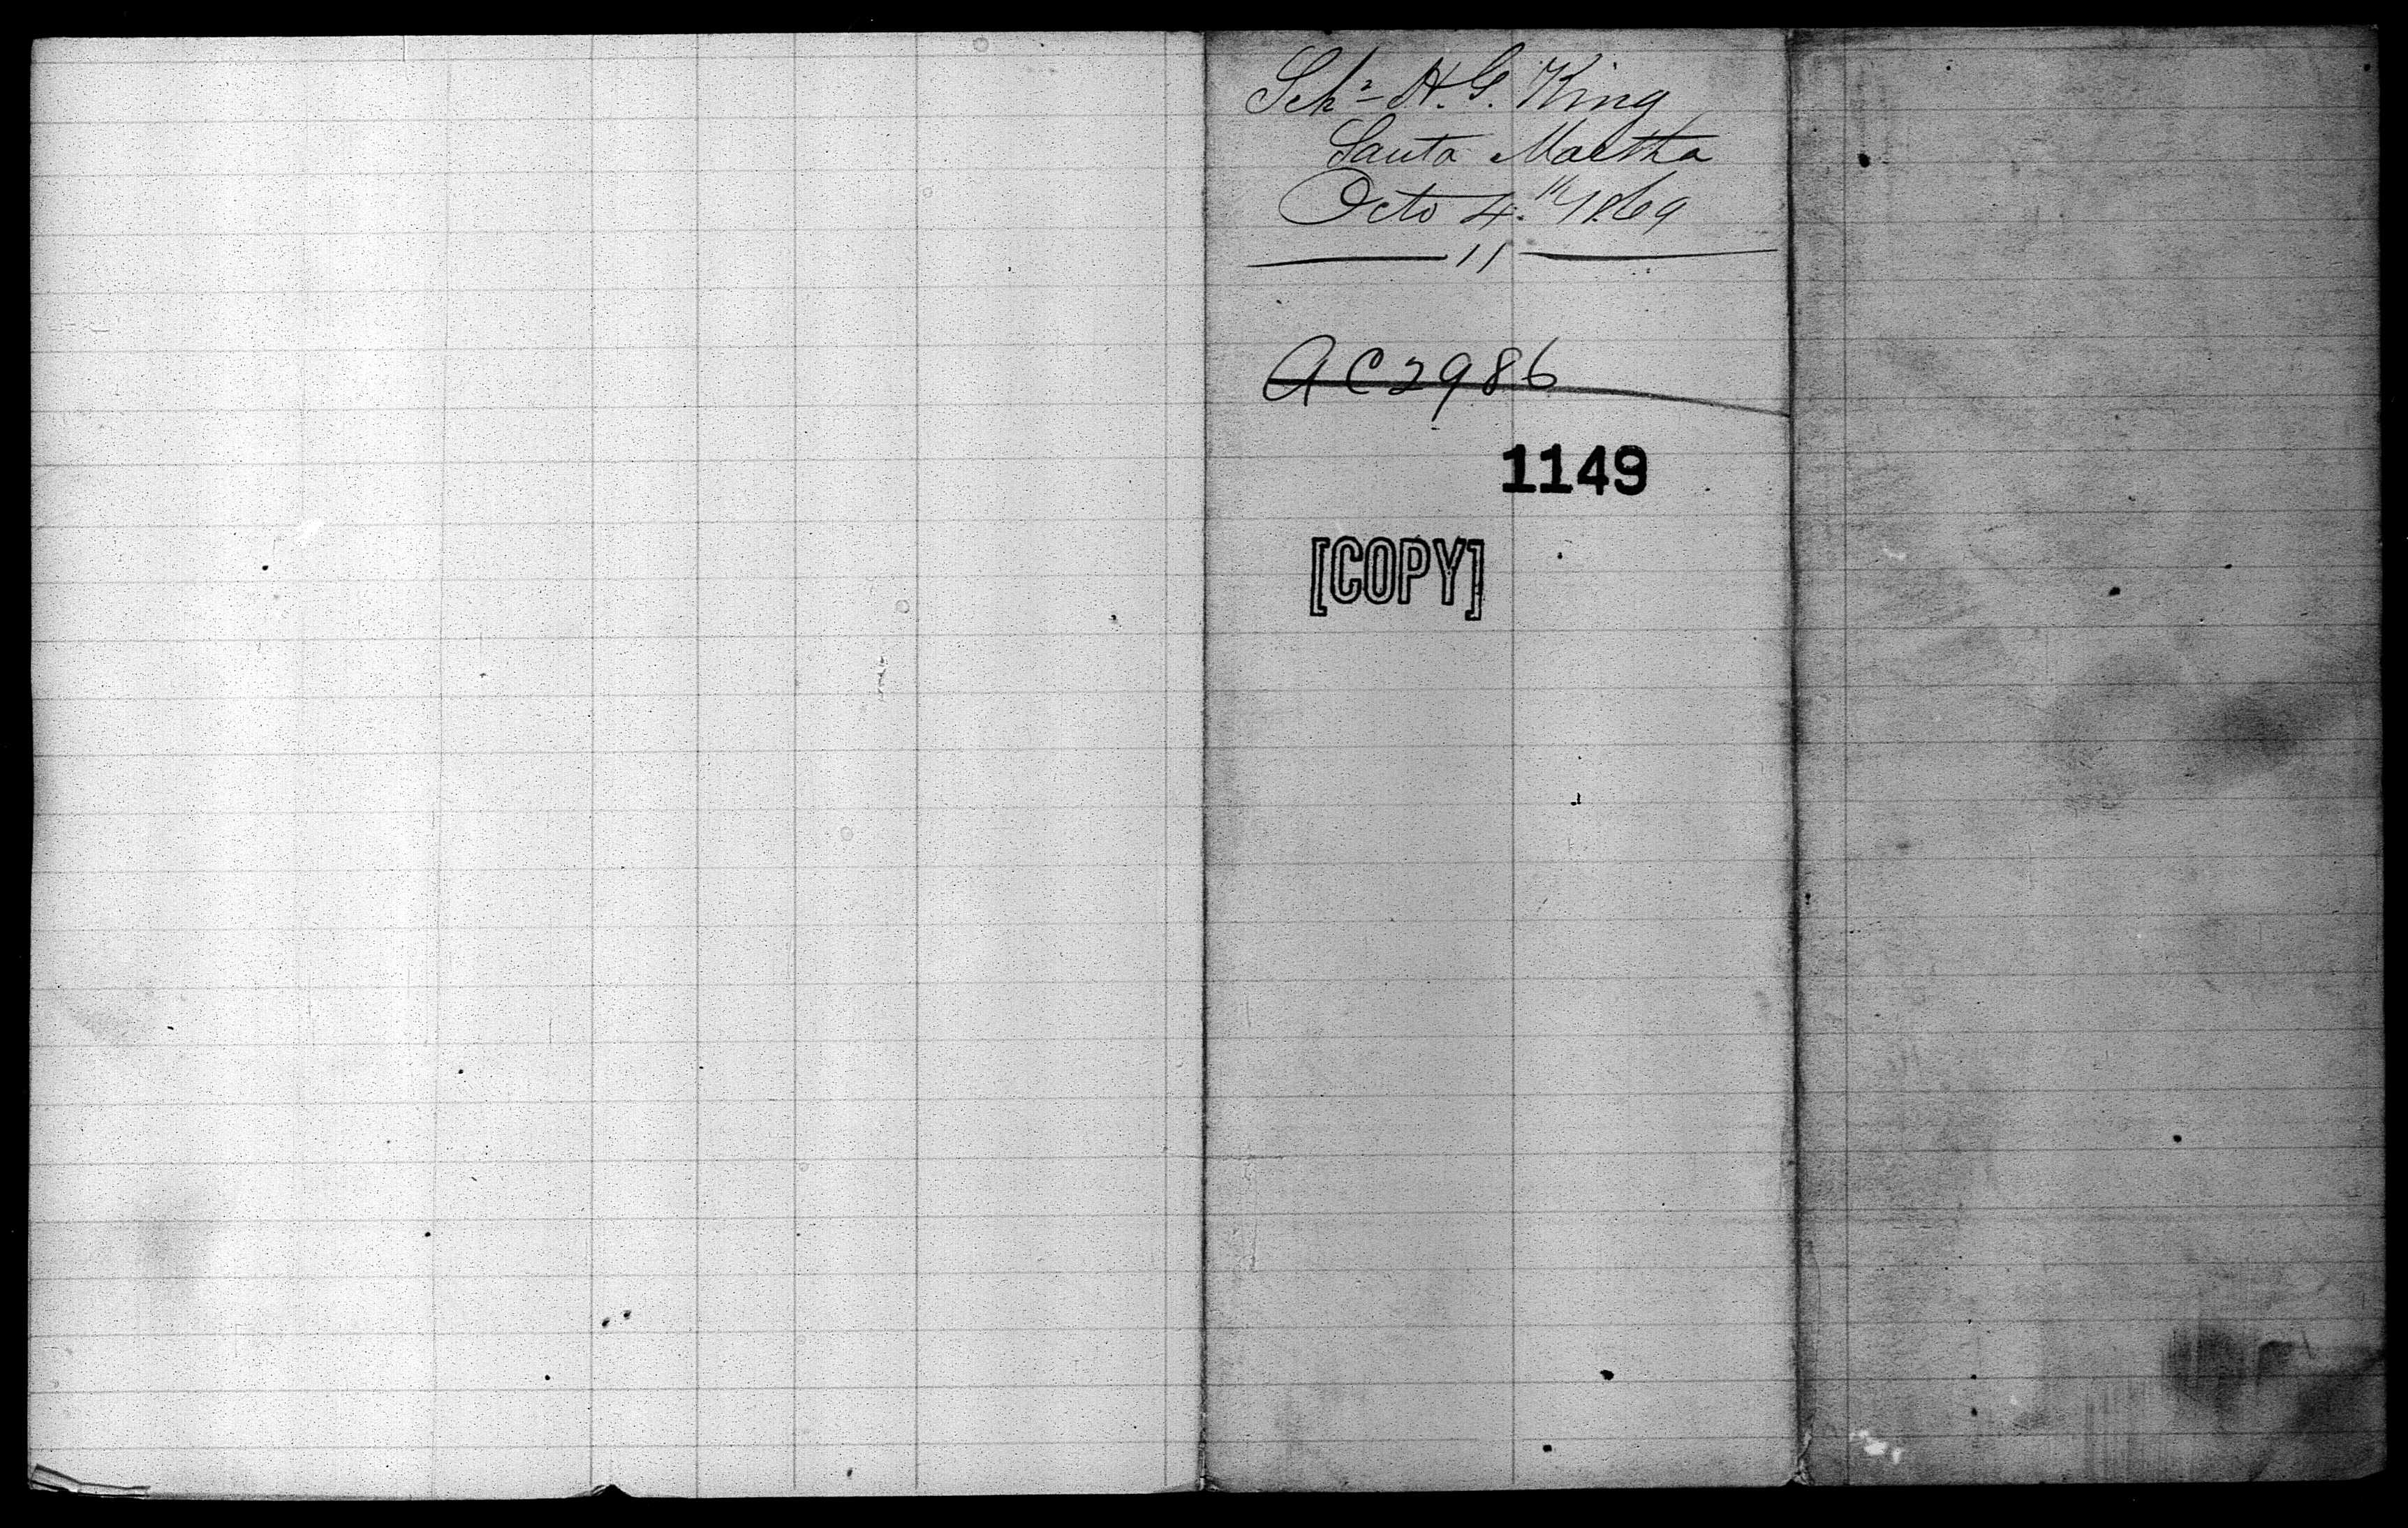 Schr H. G. King
Santa Martha
Octo 4.th 1869
11
AC2986
1149
[COPY]